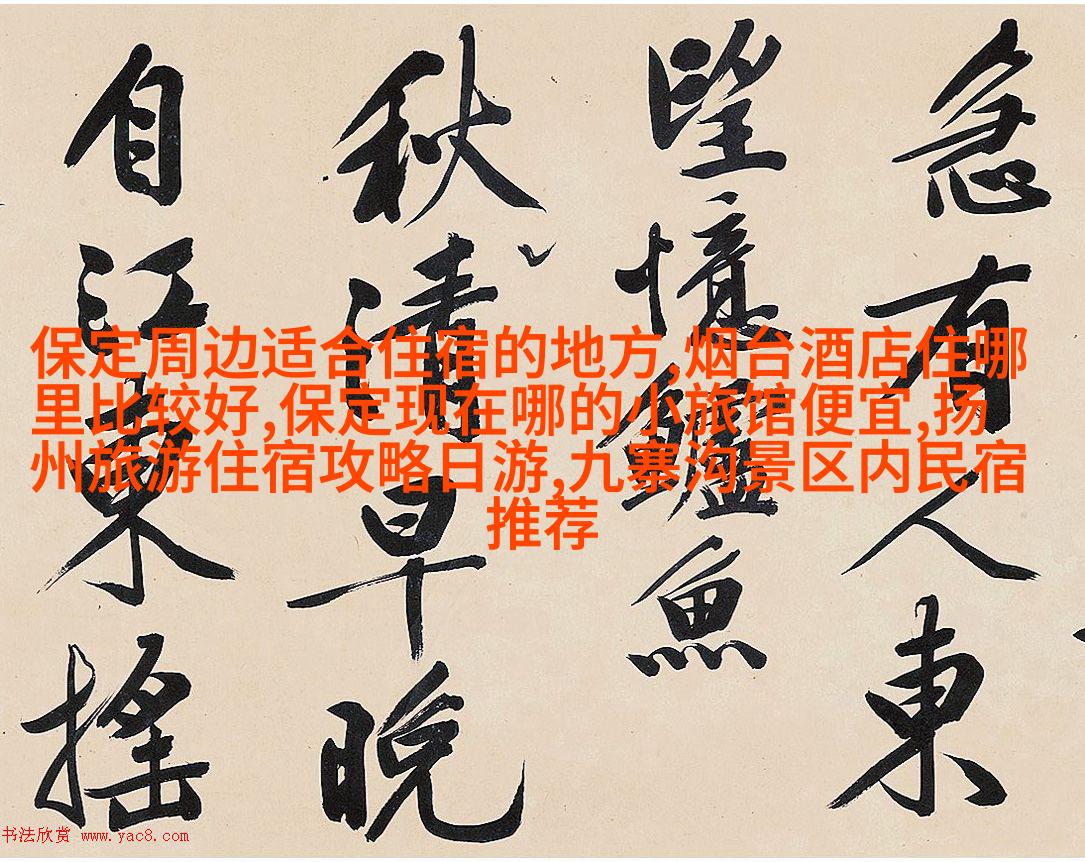 急有人東
望憶鱸魚
秋清早晚
自江東搖
保定周边适合住宿的地方,烟台酒店住哪
里比较好,保定现在哪的小旅馆便宜,扬
州旅游住宿攻略日游,九寨沟景区内民宿
推荐
书法欣赏 www.yac8.com